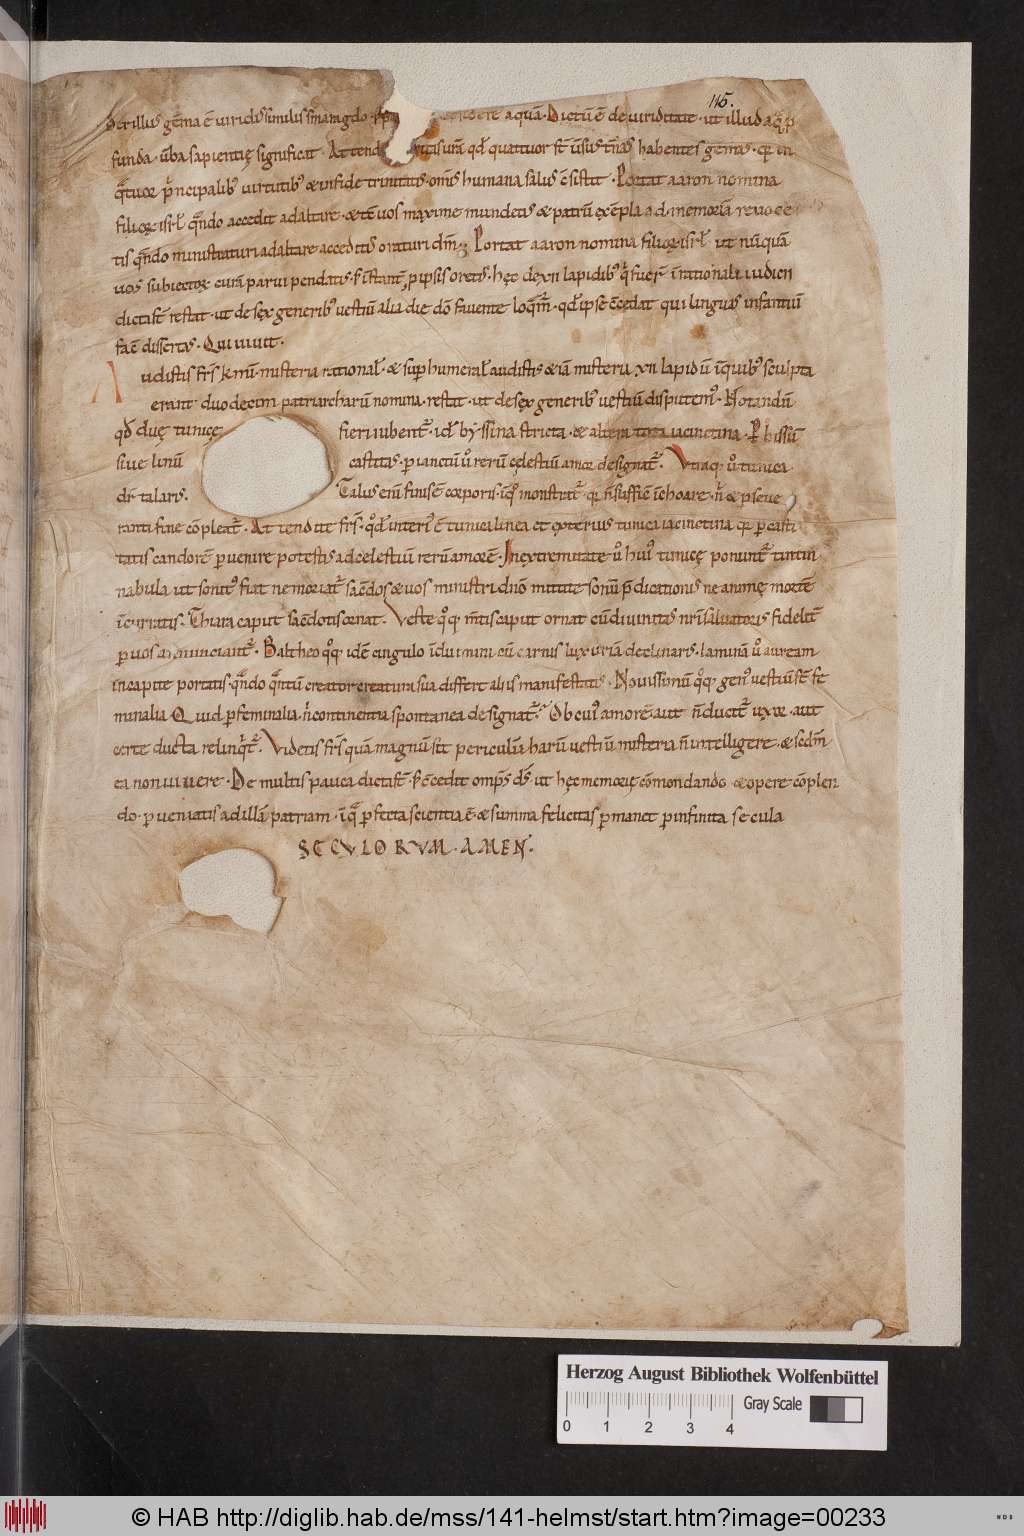 115.
Berillus gēma ē viridis similis smaragdo aquā · Dictū ē de viriditate · ut illud aq̄ p
funda · v̄ba sapientię significat · At tend qd̄ quattuor st̄ habentes gemas · in
q̄tuor p̄ncipalib; virtutib; & infide trinitatis om̄is humana salus c̄sistit · Portat aaron nomina
filioꝝ isrł · q̄ndo accedit ad altare · & tē vos maxime mundetis & patrū exēpla ad memoriā revoce
tis q̄ndo ministraturi ad altare acceditis oraturi dm̄ · Portat aaron nomina filioꝝ isrł ut nūquā
vos subiectoꝝ curā parvi pendatis · pipsis oretis · hęc de xii lapidib; q̄ fuer̄ ī rationali iudicii
dicta st̄ restat · ut de sex generib; vestiū alia die dō favente loq̄m̄ · qd̄ ipse c̄cedat qui linguas infantiū
fac̄ dissertas · Qui vivit ·
Audistis frs̄ k̄mi misteria rational̄ & sup humeral̄ audistis & iā misteria xii lapidū ī quib; sculpta
erant duodecim patriarcharū nomina · restat · ut de sex generib; vestiū disputem; · Notandū
qd̄ duę tunicę fieri iubent̄ · id ē byssina stricta · & altera tota iacinctina · P̄ bissū
sive linū castitas · p iacinctū v̄ rerū cęlestiū amor designat̄ · Utraq; v̄ tunica
dr̄ talaris · Talus eni finis ē corporis · ī quo monstrat̄ · q̄ n̄ suffic̄ īchoare · n̄ & pseve
ranti fine cōpleat̄ · At tendite frs̄ · qd̄ interi; ē tunica linea et exterius tunica iacinctina q̄ p casti
tatis candorē pvenire potestis ad celestiū rerū amorē · In extremitate v̄ hui; tunicę ponunt̄ tintin
nabula ut sonit; fiat ne moriat̄ sacdos & vos ministri dn̄o mittite sonū p̄dicationis ne animę mortē
īcurratis · Thiara caput sacdotis ornat · Veste q; mtis caput ornat cū divinitas nri salvatoris fidelit̄
p vos adnunciant̄ · Baltheo q; idē cingulo īduimini cū carnis luxuriā declinatis · laminā v̄ auream
in capite portatis · q̄ndo q̄ntū creator creatura sua differt aliis manifestatis · Novissimū q; gen; vestiū st̄ fe
minalia · Quid p feminalia n̄ continentia spontanea designat̄ · Ob cui; amorē aut n̄ ducit̄ uxor · aut
certe ducta relinq̄t̄ · Videtis frs̄ quā magnū sit periculū harū vestiū misteria n̄ intelligere · & secdm̄
ea non vivere · De multis pauca dicta st̄ · c̄cedat omps̄ ds̄ · ut hęc memorię cōmendando · & opere cōplen
do · pveniatis ad illā patriam · ī q̄ pfecta scientia ē · & summa felicitas pmanet p infinita secula
SECULORUM · AMEN ·
Herzog August Bibliothek Wolfenbüttel
Gray Scale
0 1 2 3 4
© HAB http://diglib.hab.de/mss/141-helmst/start.htm?image=00233